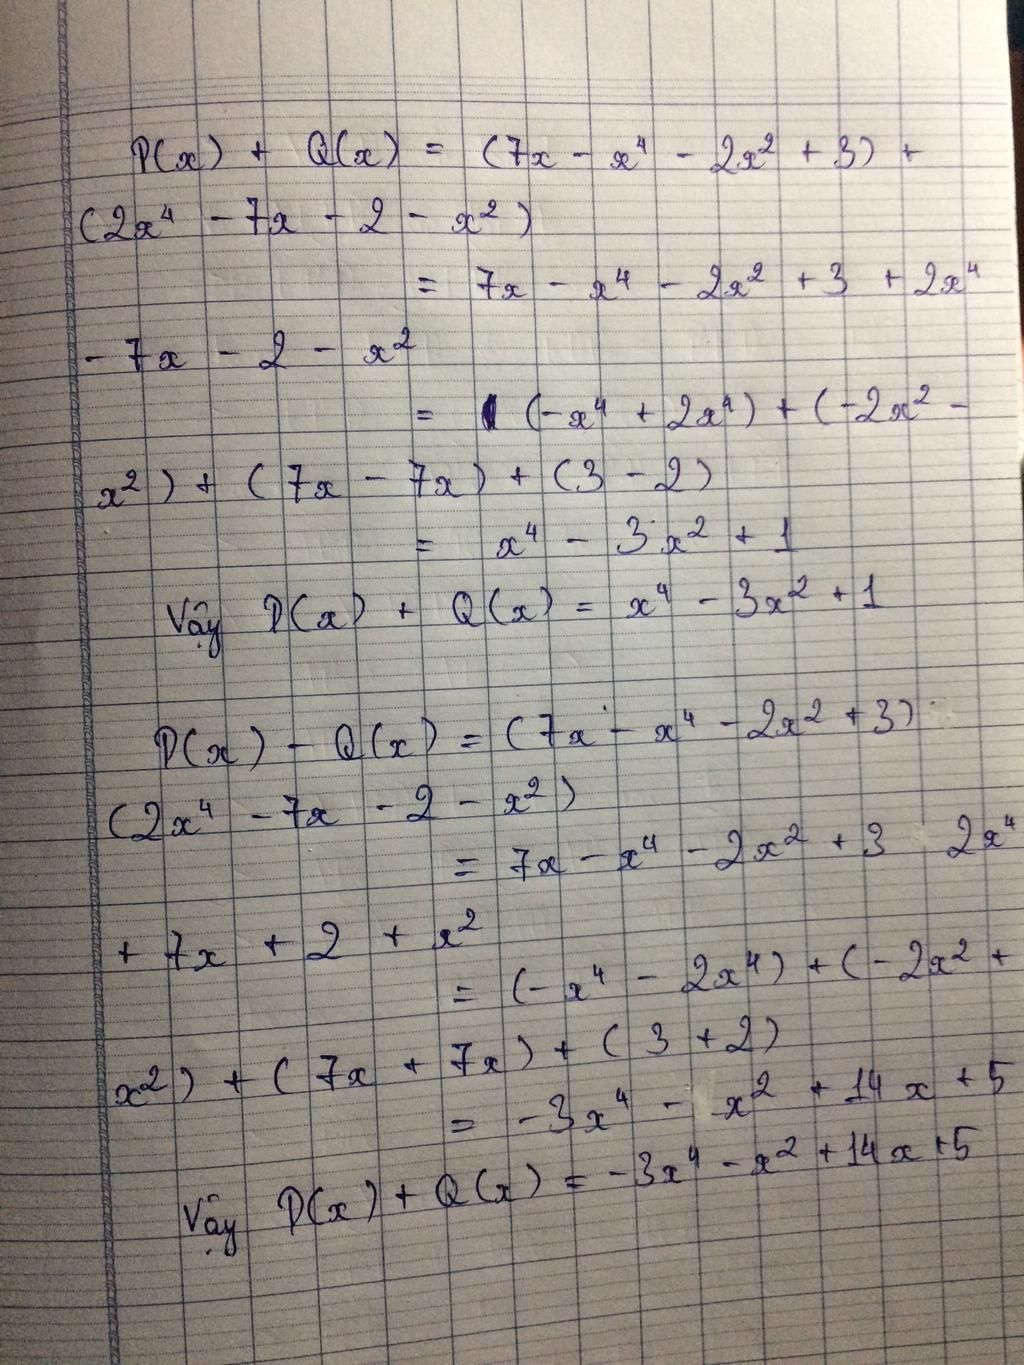 P(x) + Q(x) = (7x - x⁴ - 2x² + 3) +
(2x⁴ - 7x - 2 - x²)
= 7x - x⁴ - 2x² + 3 + 2x⁴
- 7x - 2 - x²
= (-x⁴ + 2x⁴) + (-2x² -
x²) + (7x - 7x) + (3 - 2)
= x⁴ - 3x² + 1
Vậy P(x) + Q(x) = x⁴ - 3x² + 1
P(x) - Q(x) = (7x - x⁴ - 2x² + 3)
(2x⁴ - 7x - 2 - x²)
= 7x - x⁴ - 2x² + 3 2x⁴
+ 7x + 2 + x²
= (-x⁴ - 2x⁴) + (-2x² +
x²) + (7x + 7x) + (3 + 2)
= -3x⁴ - x² + 14x + 5
Vậy P(x) + Q(x) = -3x⁴ - x² + 14x + 5